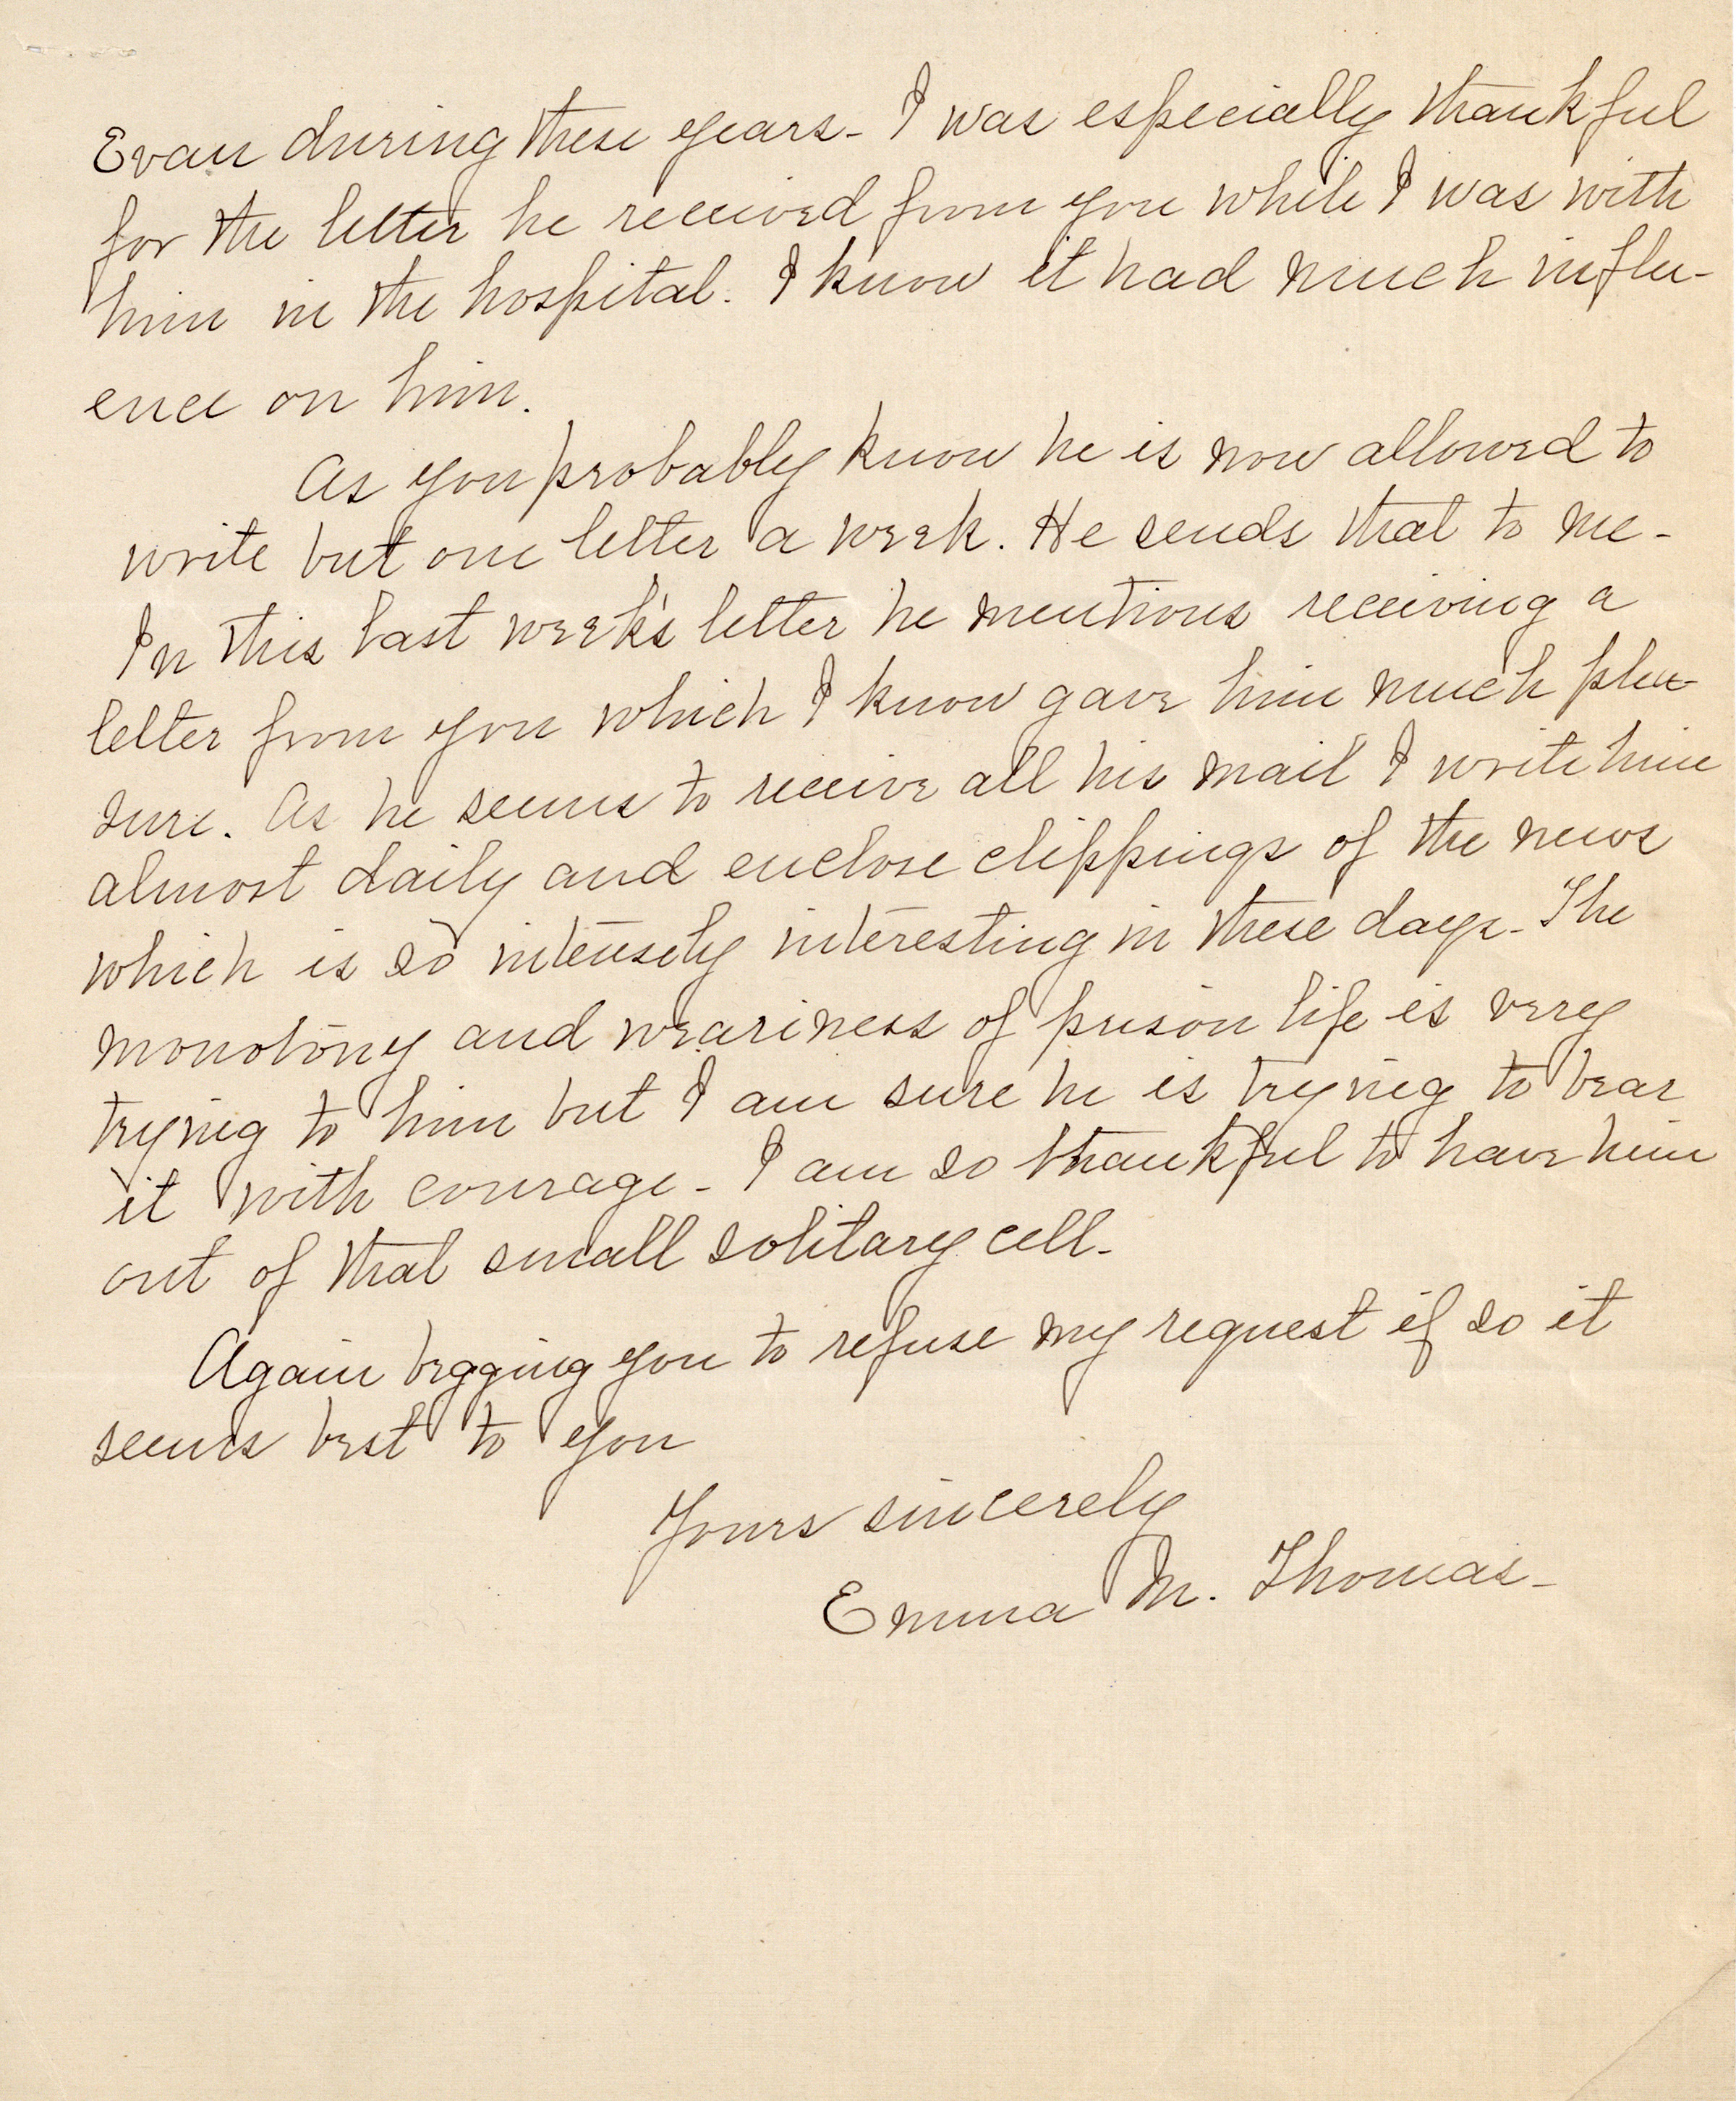 Evan during these years - I was especially thankful
for the letter he received from you while I was with
him in the hospital. I know it had much influ-
ence on him.
As you probably know he is now allowed to
write but one letter a week. He sends that to me -
In this last week's letter he mentions receiving a
letter from you which I know gave him much plea-
sure. As he seems to receive all his mail I write him
almost daily and enclose clippings of the news
which is so intensely interesting in these days - The
monotony and weariness of prison life is very
trying to him but I am sure he is trying to bear
it with courage - I am so thankful to have him
out of that small solitary cell -
Again begging you to refuse my request if so it
seems best to you
Yours sincerely
Emma M. Thomas -